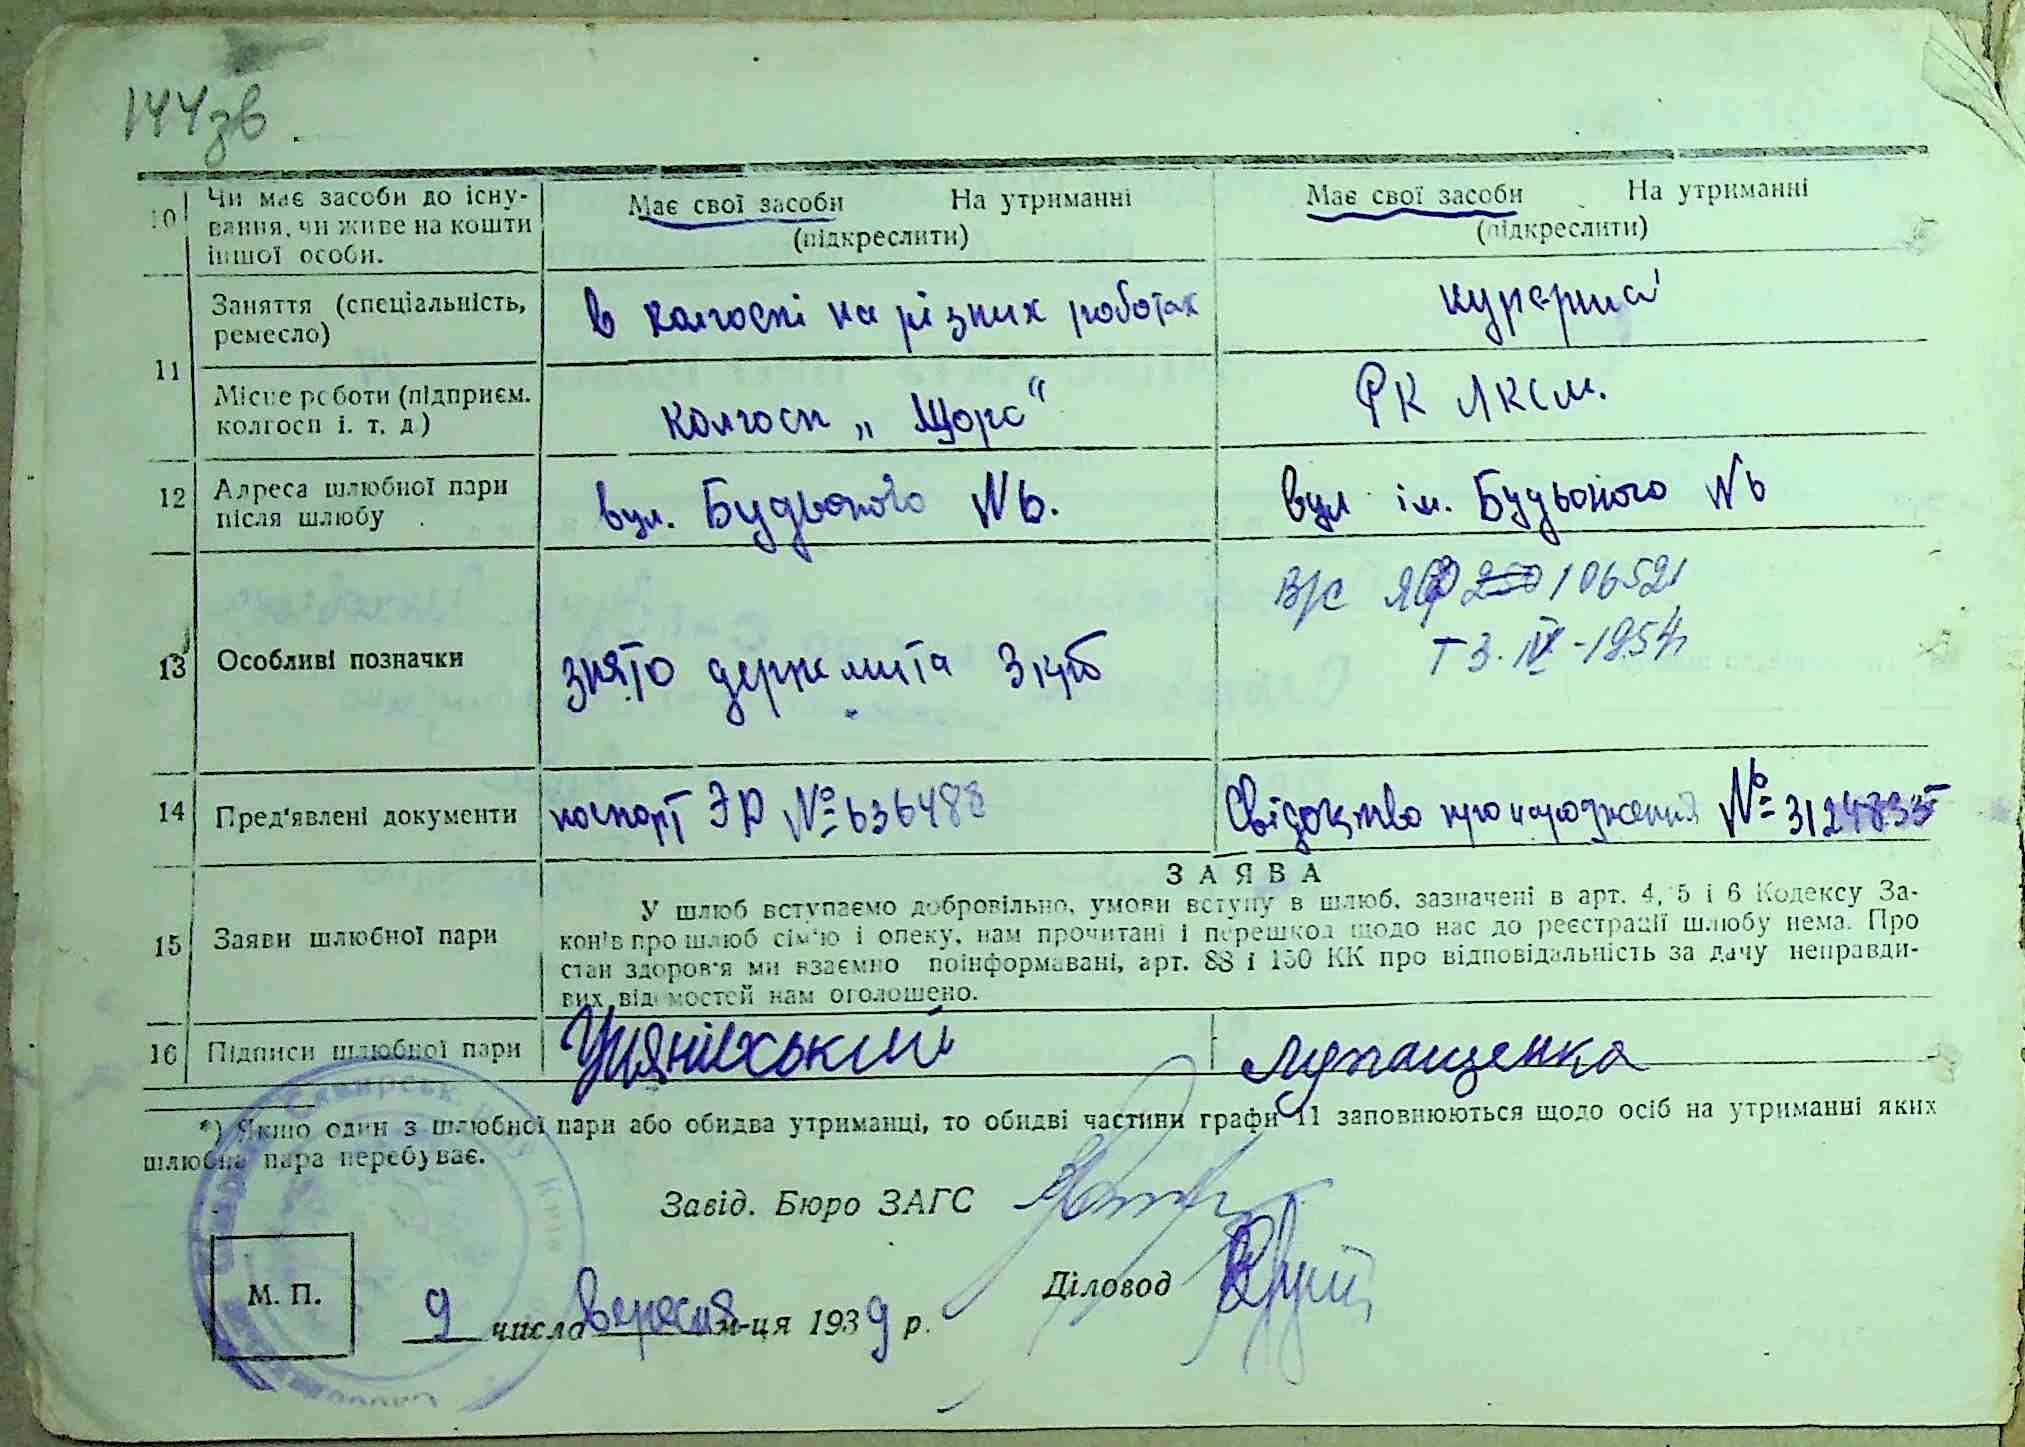 144зв
10 Чи має засоби до існу-
вання, чи живе на кошти
іншої особи.
Має свої засоби На утриманні
(підкреслити)
Має свої засоби На утриманні
(підкреслити)
11 Заняття (спеціальність,
ремесло)
в колгоспі на різних роботах
курєрша
Місце роботи (підприєм.
колгосп і. т. д.)
колгосп „Щорс“
РК ЛКСМ.
12 Алреса шлюбної пари
після шлюбу
вул. Будьоного №6.
вул ім. Будьоного №6
13 Особливі позначки
знято держ мита 3 крб
В/С ЯФ 106521
3. IV - 1954
14 Пред'явлені документи
паспорт ЭД № 636488
Свідоцтво про народження № 3124835
З А Я В А
15 Заяви шлюбної пари
У шлюб вступаємо добровільно, умови вступу в шлюб, зазначені в арт. 4, 5 і 6 Кодексу За-
конів про шлюб сім'ю і опеку, нам прочитані і перешкод щодо нас до реєстрації шлюбу нема. Про
стан здоров'я ми взаємно поінформавані, арт. 88 і 150 КК про відповідальність за дачу неправди-
вих відомостей нам оголошено.
16 Підписи шлюбної пари
Улянівський
Лупащенка
*) Якшо один з шлюбної пари або обидва утриманці, то обидві частини графи 11 заповнюються щодо осіб на утриманні яких
шлюбна пара перебуває.
Завід. Бюро ЗАГС
Діловод
М. П.
9 числа вересня м-ця 1939 р.